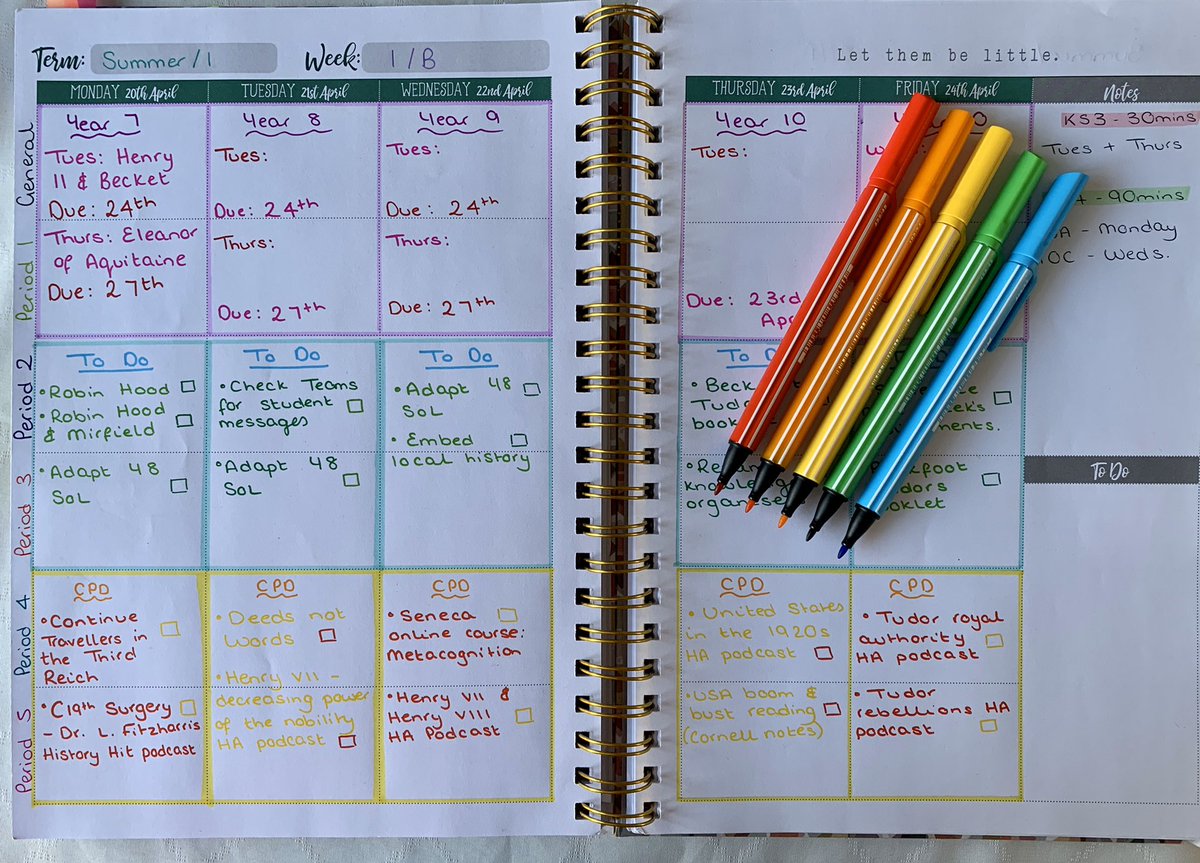 Term: Summer/1 Week: 1/B
MONDAY 20th April
General
Year 7
Tues: Henry
II & Becket
Due: 24th
Period 1
Thurs: Eleanor
of Aquitaine
Due: 27th
Period 2
To Do
• Robin Hood
• Robin Hood
& Mirfield
Period 3
• Adapt 48
SoL
Period 4
CPD
• Continue
Travellers in
the Third
Reich
Period 5
• C19th Surgery
- Dr. L. Fitzharris
History Hit podcast
TUESDAY 21st April
Year 8
Tues:
Due: 24th
Thurs:
Due: 27th
To Do
• Check Teams
for student
messages
• Adapt 48
SoL
CPD
• Deeds not
Words
• Henry VII -
decreasing power
of the nobility
HA podcast
WEDNESDAY 22nd April
Year 9
Tues:
Due: 24th
Thurs:
Due: 27th
To Do
• Adapt 48
SoL
• Embed
local history
CPD
• Seneca
online course:
metacognition
• Henry VII &
Henry VIII
HA Podcast
Let them be little.
THURSDAY 23rd April
Year 10
Tues:
Due: 23rd
To
CPD
• United States
in the 1920s
HA podcast
• USA boom &
bust reading
(Cornell notes)
FRIDAY 24th April
CPD
• Tudor royal
authority
HA podcast
• Tudor
rebellions HA
podcast
Notes
KS3 - 30mins
Tues + Thurs
- 90mins
- monday
- Weds.
To Do